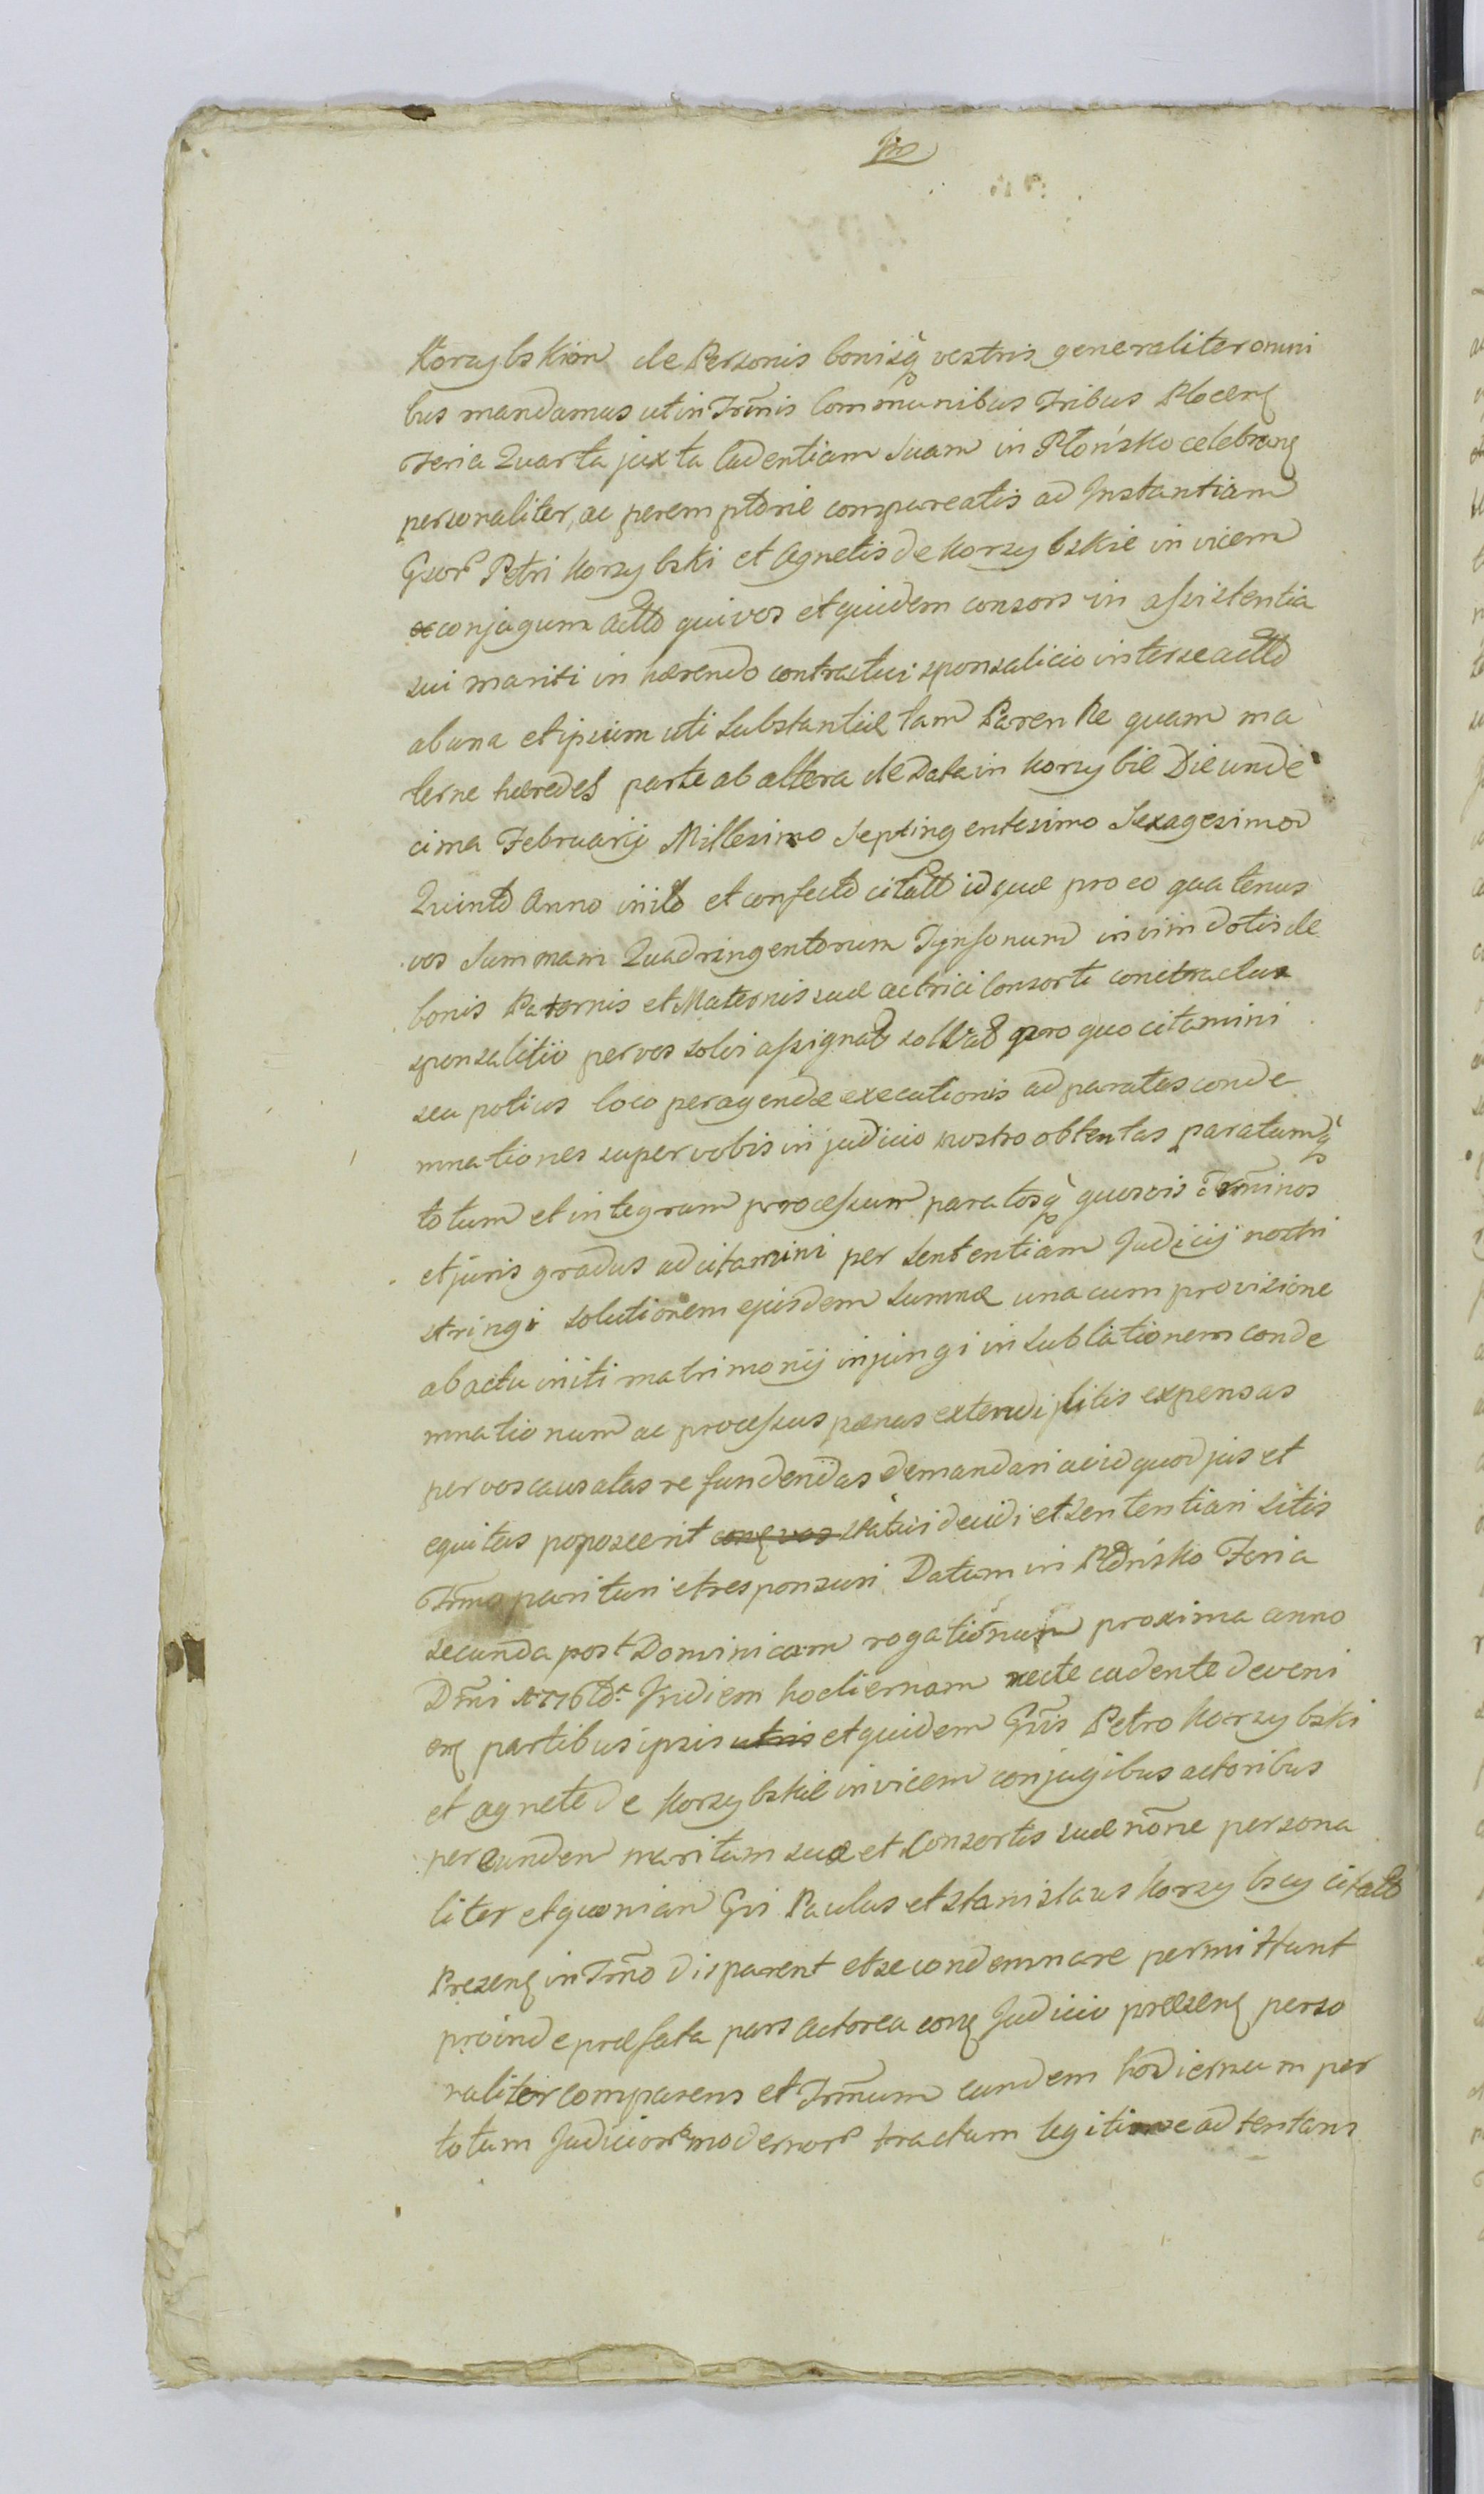 Korzybskion de Personis bonisq vestris generaliter omni
bus mandamus ut in Trmnis Communibus Tribus Plocen
Feria Quarta juxta Cadentiam Suam in Płońsko celebran
personaliter, ac peremptorie compareatis ad Instantiam
Gsor Petri Korzybski et Agnetis de Korzybskie invicem
conjugum Actto qui vos et quidem consors in assistentia
sui mariti in hærendo contractui sponsalicio inter se actto
ab una et ipsum uti Substantiæ tam Paren næ quam ma
ternæ hæredes parte ab altera de Data in Korzybie Die unde
cima Februarij Millesimo Septingentesimo Sexagesimo
Quinto Anno inito et confecto citatto idquæ pro eo quatenus
vos Summam Quadringentorum Tynfonum in vim dotis de
bonis Paternis et Maternis suæ actrici Consorti contractu
sponsalitio per vos solvi assignat solvat pro quo citamini
seu potius loco peragendæ executionis ad paratas conde
mnationes super vobis in judicio nostro obtentas paratumq
totum et integrum processum paratosq quosvis Trminos
et juris gradus adcitamini per Sententiam Judicij nostri
stringi solutionem ejusdem Summæ una cum provisione
ab actu initi matrimonij injungi in sublationem conde
mnationum ac processus pænas extendi litis expensas
per vos causatas refundendas demandari ac id quod jus et
equitas poposcerit statui decidi et sententiari sitis
Trmo parituri et responsuri Datum in Płońsko Feria
secunda post Dominicam rogationum proxima anno
Dmi 176 In diem hodiernam recte cadente deveni
en partibus ipsis utris et quidem Gsis Petro Korzybski
et Agnete de Korzybskie invicem conjugibus actoribus
per eundem maritum suo et Consortis suæ nõne persona
liter et quoniam Gsi Paulus et Stanislaus Korzybscy citatto
Presen in Trmo disparent et se condemnare permittunt
proinde præfata pars actorea con Judicio presen perso
naliter comparens et Trmum eundem hodiernum per
totum Judicior modernor tractum legitime adtentans